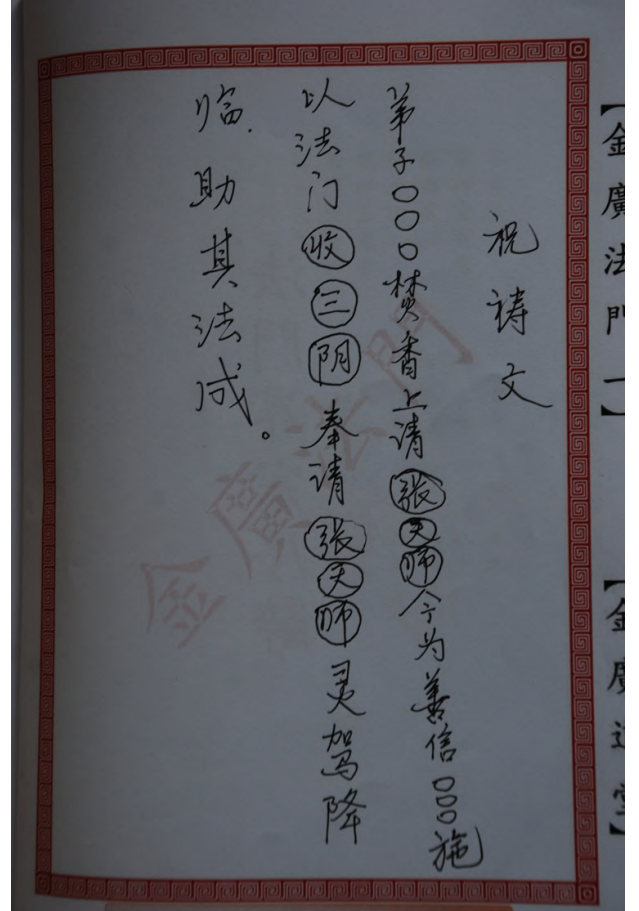 祝祷文
弟子〇〇〇焚香上请张天师今为善信〇〇〇施
以法门收三阴奉请张天师灵驾降
临.助其法成。
金廣法門
【金廣法門一】
【金廣道堂】